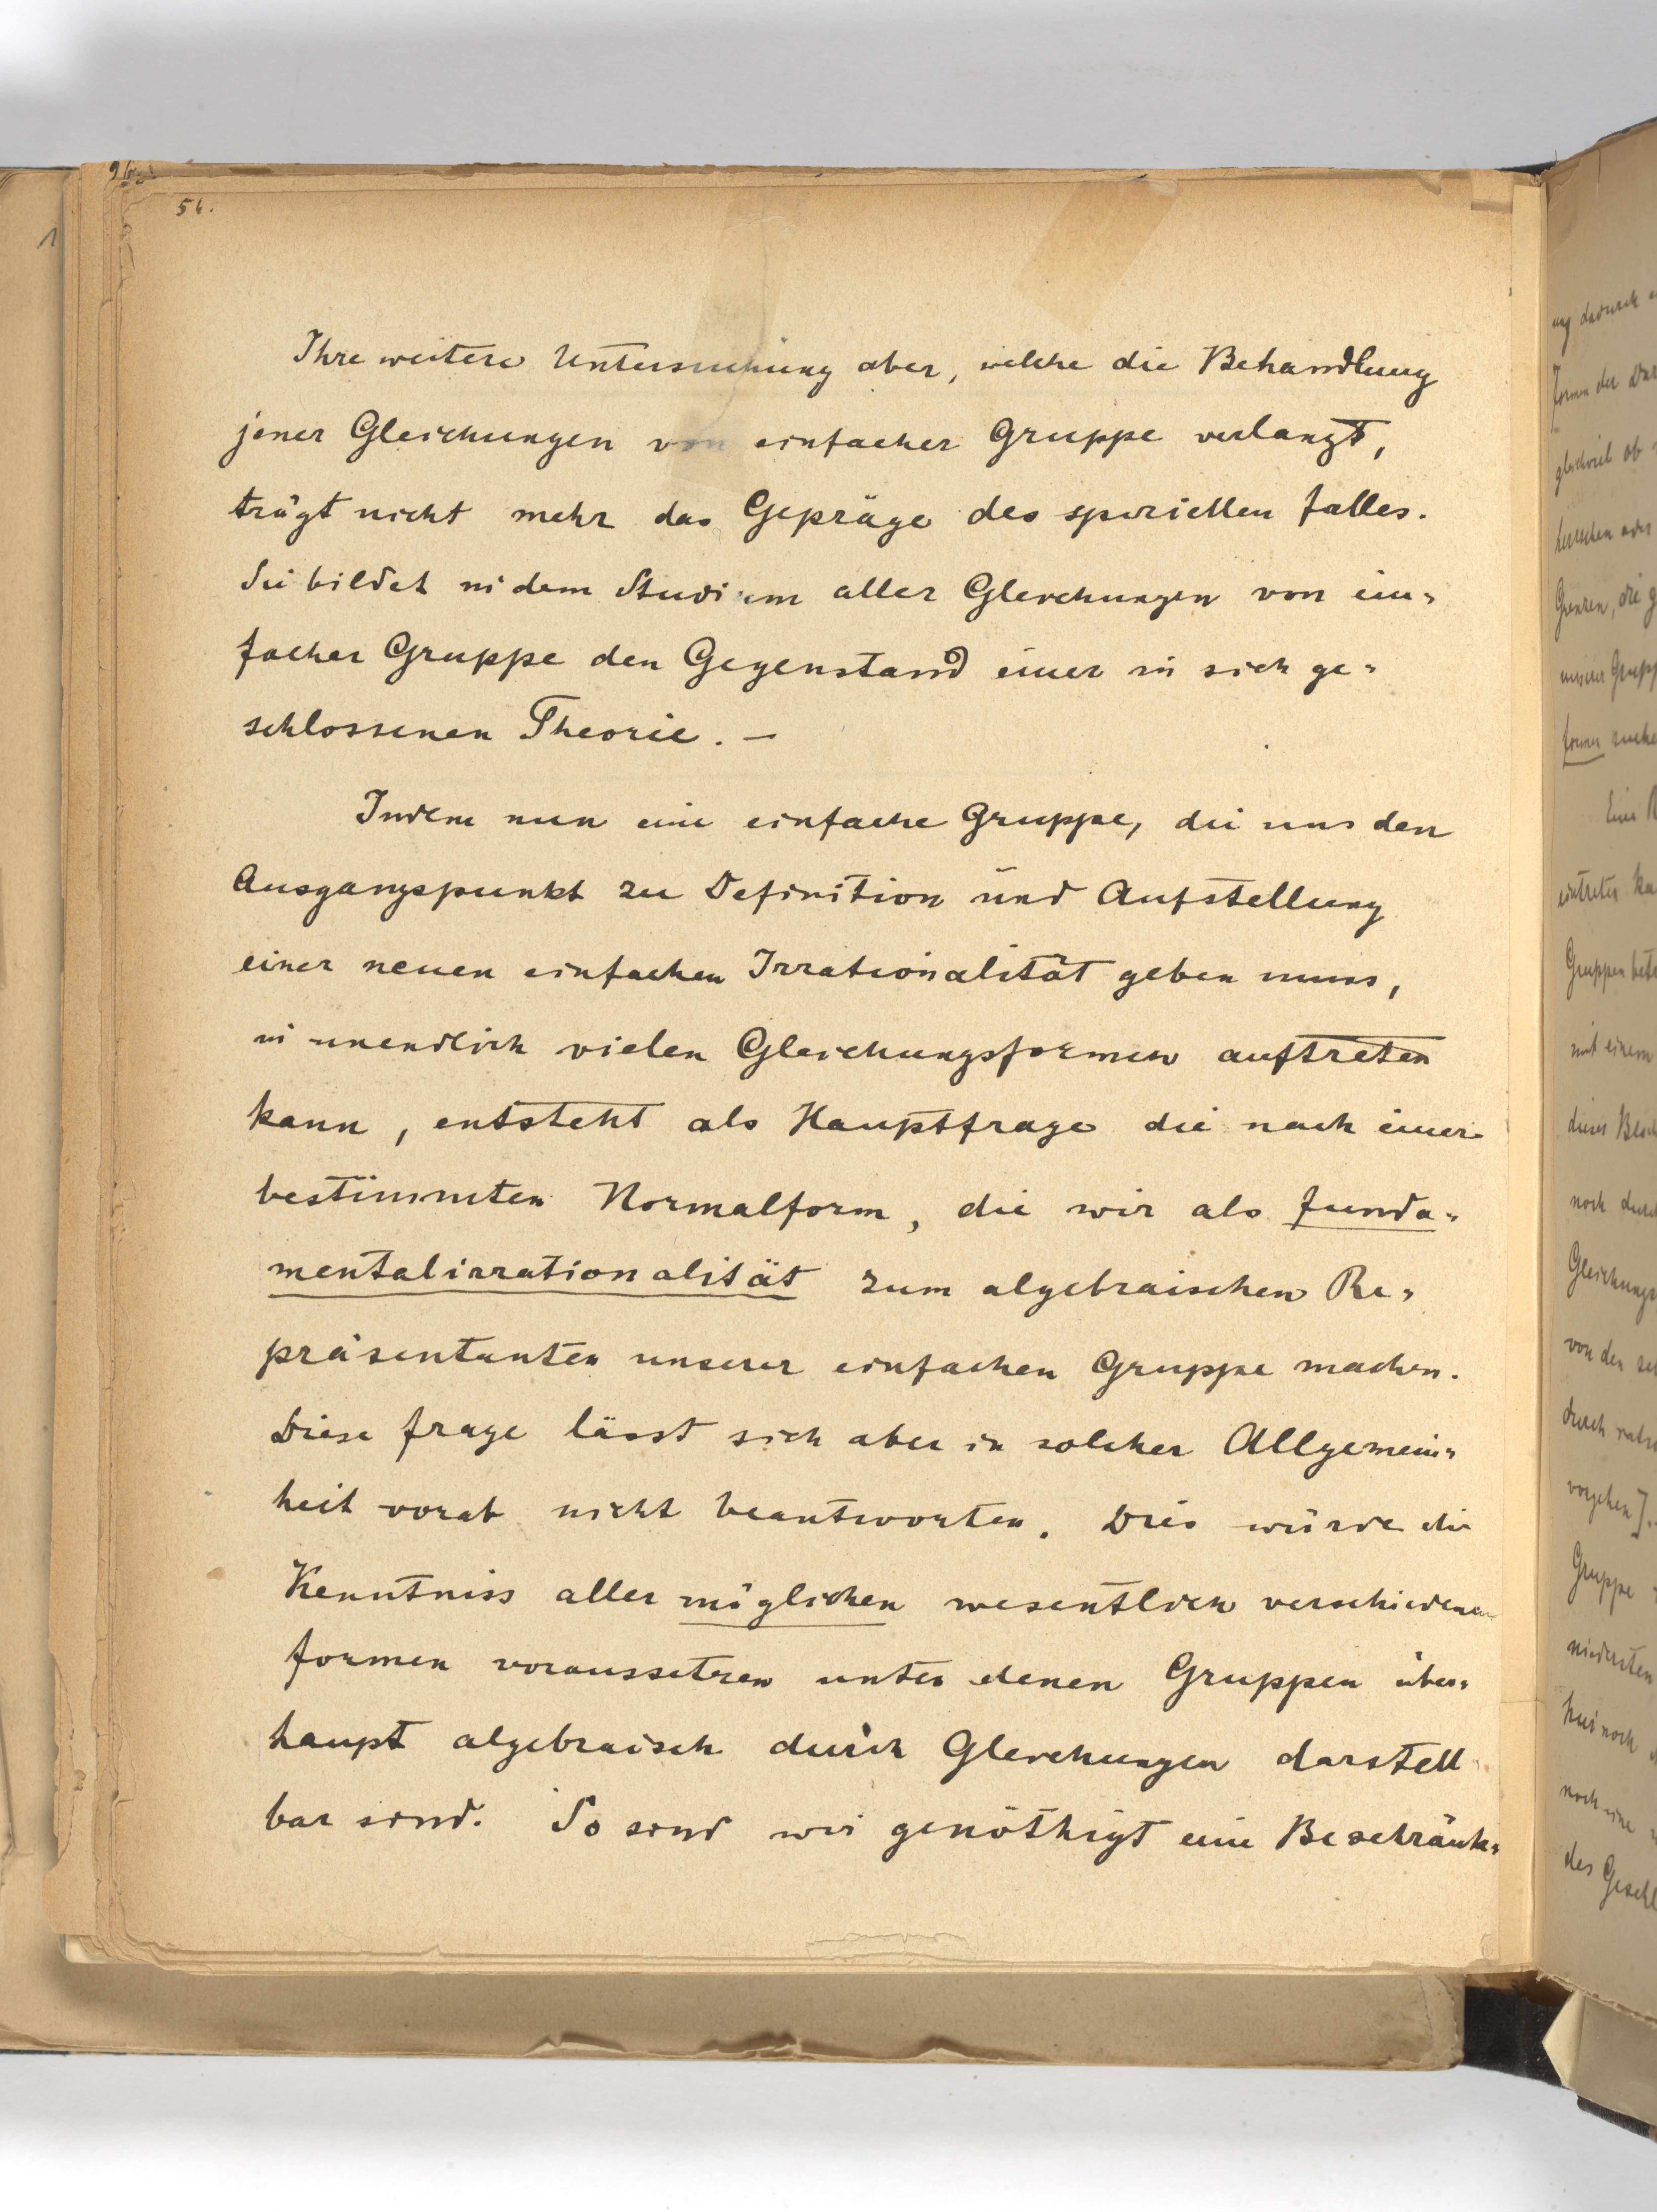 56.
Ihre weitere Untersuchung aber, welche die Behandlung
jener Gleichungen von einfacher Gruppe verlangt,
trägt nicht mehr das Gepräge des speziellen Falles.
Sie bildet in dem Studium aller Gleichungen von ein=
facher Gruppe den Gegenstand einer in sich ge=
schlossenen Theorie. —
Indem nun eine einfache Gruppe, die uns den
Ausgangspunkt zu Definition und Aufstellung
einer neuen einfachen Irrationalität geben muss,
in unendlich vielen Gleichungsformen auftreten
kann, entsteht als Hauptfrage die nach einer
bestimmten Normalform, die wir als Funda=
mentalirrationalität zum algebraischen Re=
präsentanten unserer einfachen Gruppe machen.
Diese Frage lässt sich aber in solcher Allgemein=
heit vorab nicht beantworten. Dies würde die
Kenntniss aller möglichen wesentlich verschiedenen
Formen voraussetzen unter denen Gruppen über=
haupt algebraisch durch Gleichungen darstell
bar sind. So sind wir genöthigt eine Beschränk=
ung dadurch
Formen der
gleichviel ob
herrschen oder
Grenzen, die
unserer
former
Eine
eintreten
Gruppen
mit einem
dieses
noch
von den
durch
vorgehen].
Gruppe
niedersten
noch eine
des